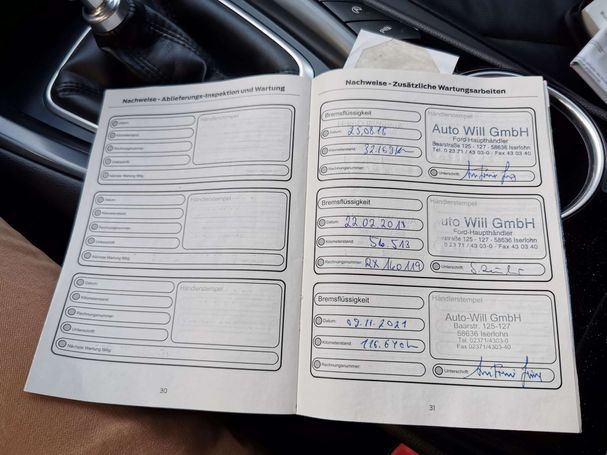 Nachweise - Ablieferungs-Inspektion und Wartung
Datum:
Kilometerstand:
Rechnungsnummer:
Unterschrift:
Nächste Wartung fällig:
Händlerstempel
Datum:
Kilometerstand:
Rechnungsnummer:
Unterschrift:
Nächste Wartung fällig:
Händlerstempel
Datum:
Kilometerstand:
Rechnungsnummer:
Unterschrift:
Nächste Wartung fällig:
Händlerstempel
30
Nachweise - Zusätzliche Wartungsarbeiten
Bremsflüssigkeit
Datum:
Kilometerstand:
Rechnungsnummer:
Händlerstempel
Auto Will GmbH
Ford-Haupthändler
Baarstraße 125 - 127 - 58636 Iserlohn
Tel. 0 23 71 / 43 03-0 · Fax 43 03 40
Unterschrift:
Bremsflüssigkeit
Datum: 22.02.2018
Kilometerstand: 56.513
Rechnungsnummer: RX 160119
Händlerstempel
uto Will GmbH
Ford-Haupthändler
125 - 127 - 58636 Iserlohn
43 03-0 · Fax 43 03 40
Unterschrift:
Bremsflüssigkeit
Datum: 09.11.2021
Kilometerstand:
Rechnungsnummer:
Händlerstempel
Auto-Will GmbH
Baarstr. 125-127
58636 Iserlohn
Tel. 02371/4303-0
Fax 02371/4303-40
Unterschrift:
31